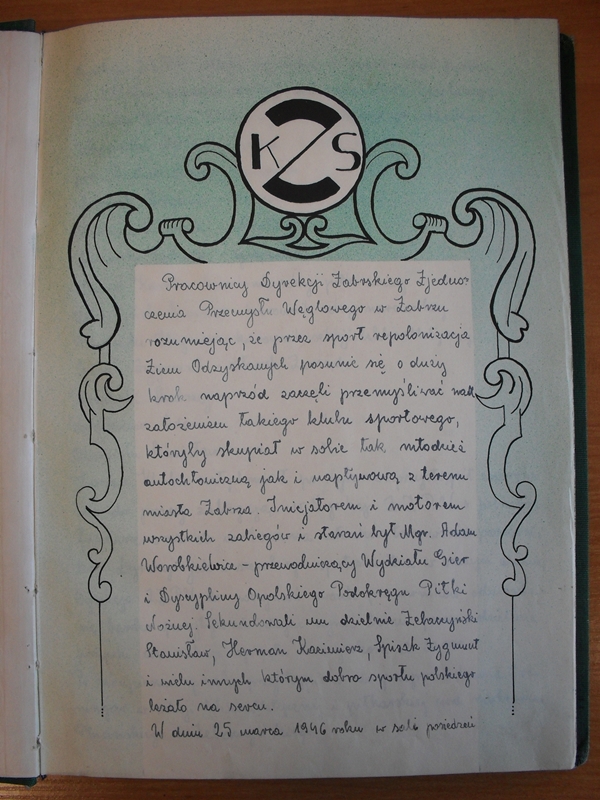 K Z S
Pracownicy Dyrekcji Zabrskiego Zjedno-
czenia Przemysłu Węglowego w Zabrzu
rozumiejąc, że przez sport repolonizacja
Ziem Odzyskanych posunie się o duży
krok naprzód zaczęli przemyśliwać nad
założeniem takiego klubu sportowego,
któryby skupiał w sobie tak młodzież
autochtoniczną jak i napływową z terenu
miasta Zabrza. Inicjatorem i motorem
wszystkich zabiegów i starań był Mgr. Adam
Worobkiewicz - przewodniczący Wydziału Gier
i Dyscypliny Opolskiego Podokręgu Piłki
Nożnej. Sekundowali mu dzielnie
Stanisław, Herman Kazimierz, Spisak Zygmunt
i wielu innych którym dobro sportu polskiego
leżało na sercu.
W dniu 25 marca 1946 roku w sali posiedzeń